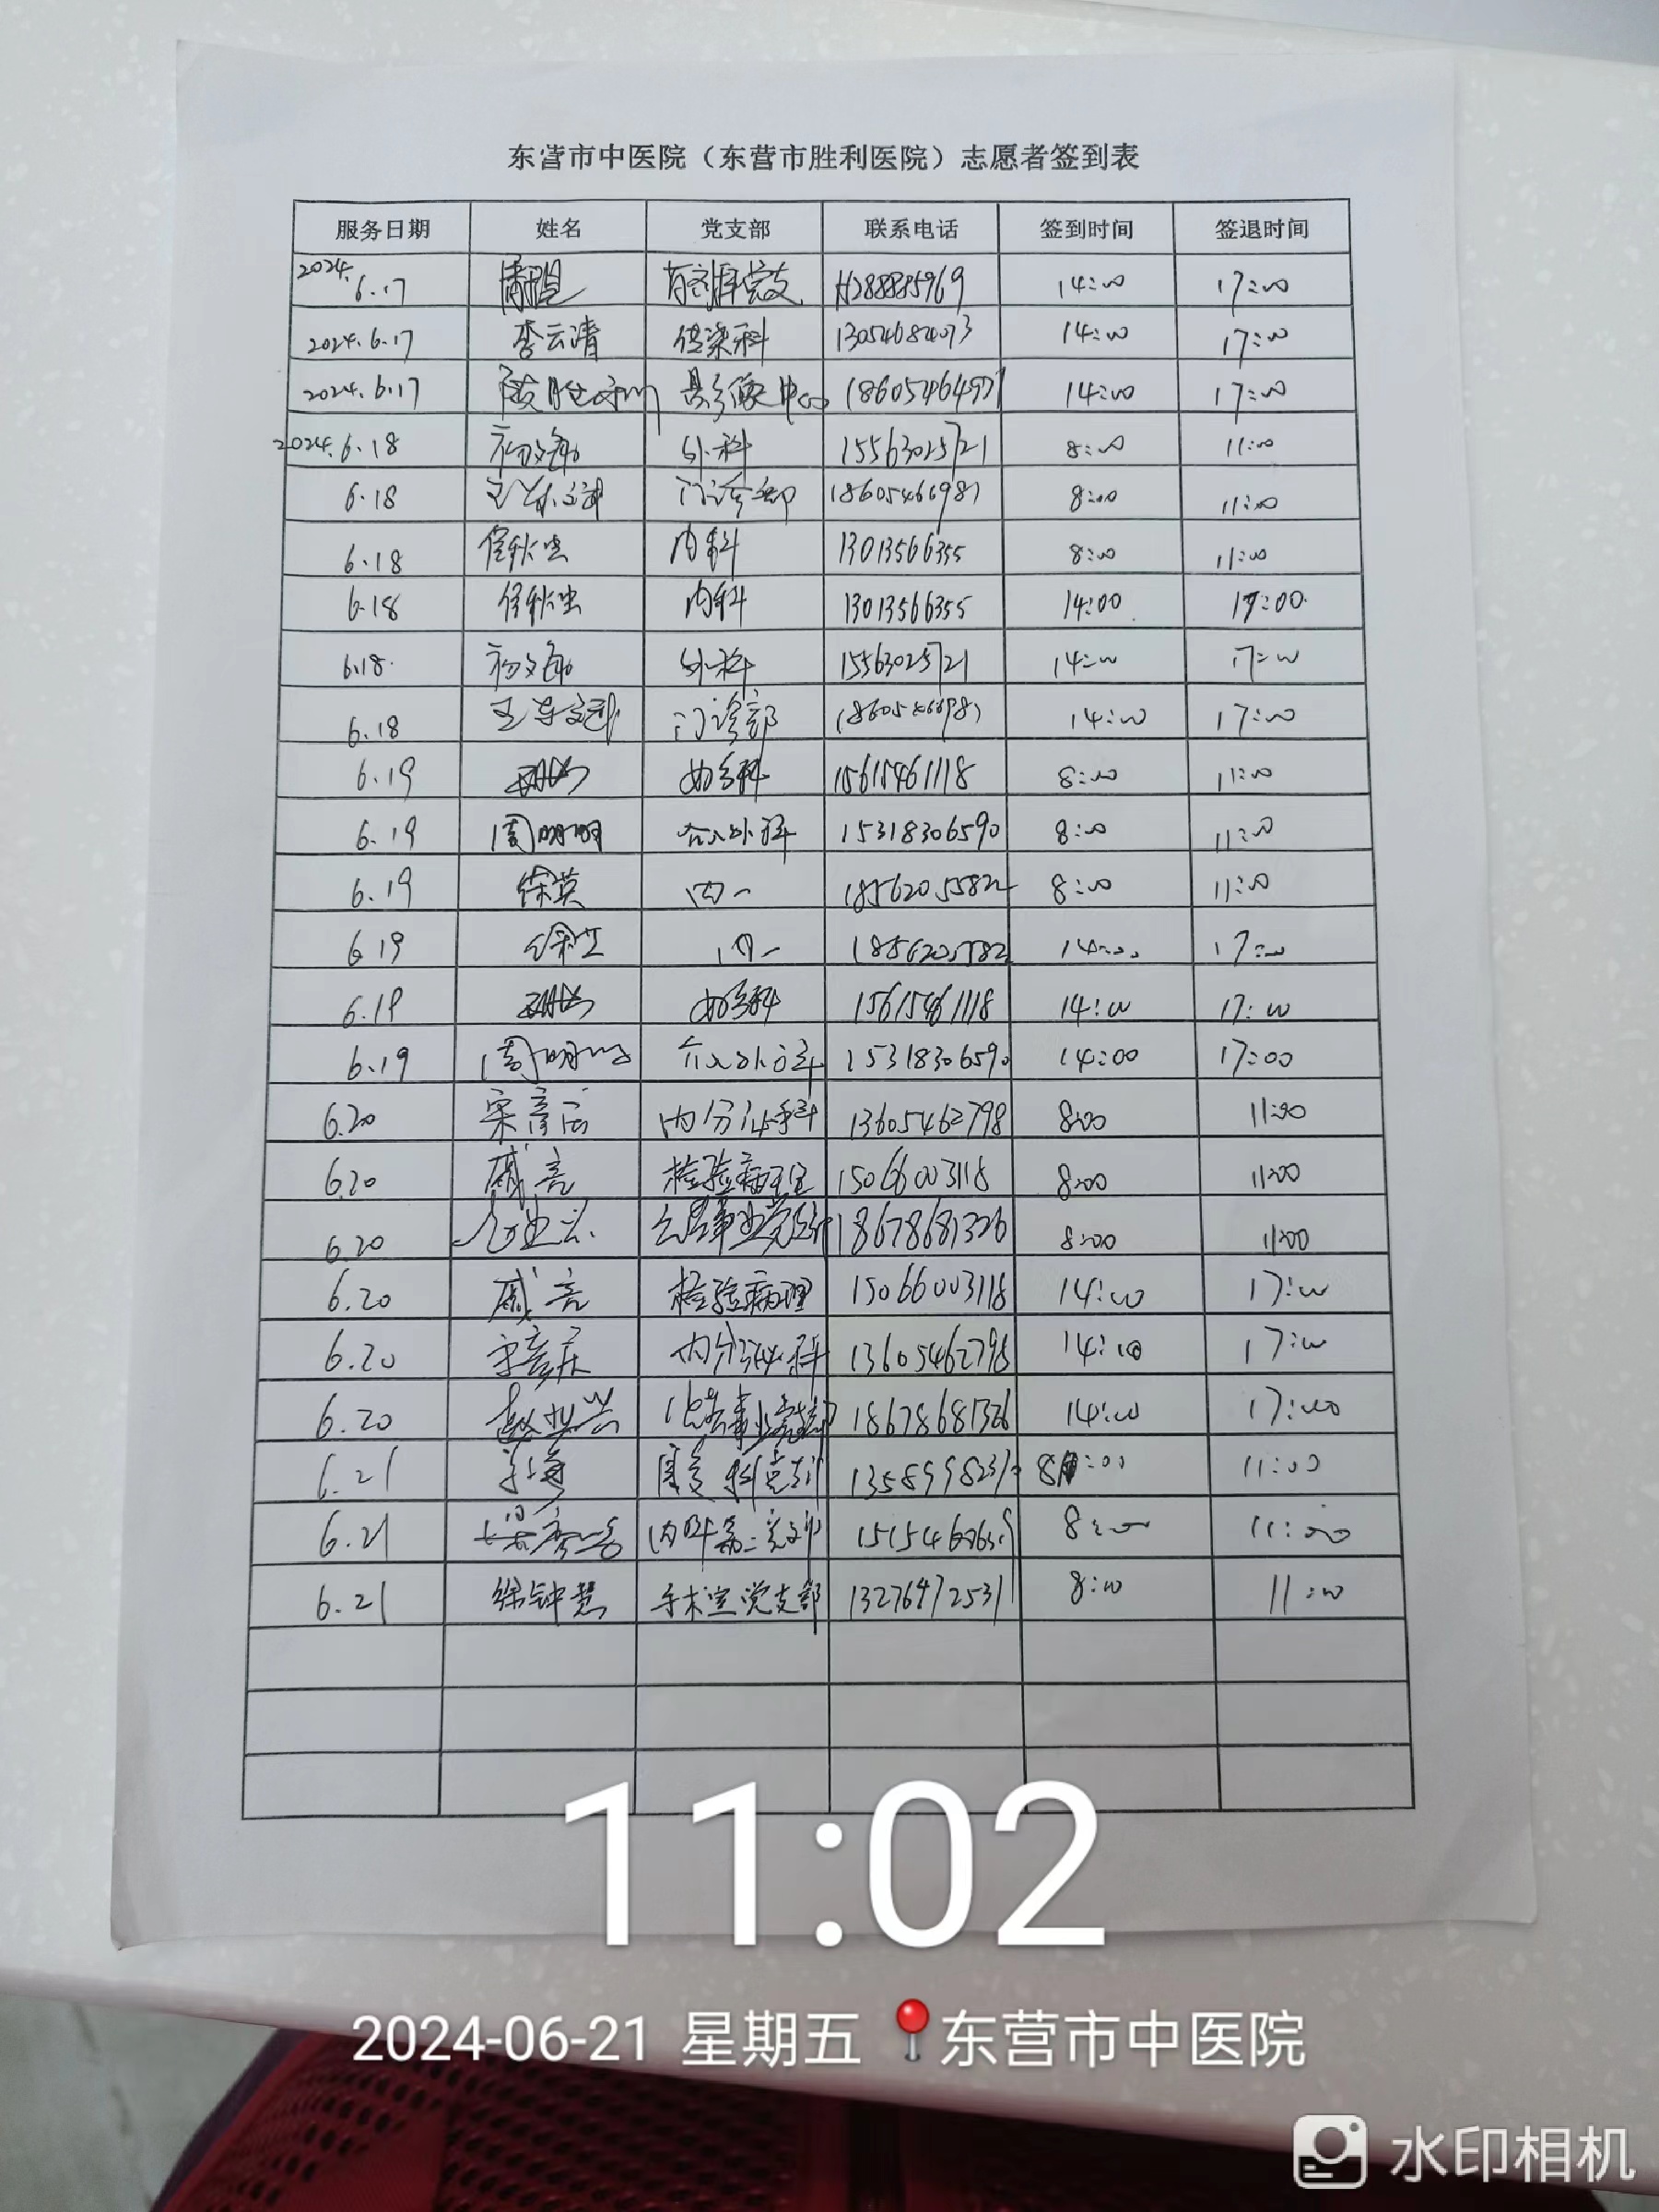 东营市中医院（东营市胜利医院）志愿者签到表
服务日期 姓名 党支部 联系电话 签到时间 签退时间
2024.6.17 14:00 17:00
2024.6.17 李云清 传染科 13054684073 14:00 17:00
2024.6.17 影像中心 14:00 17:00
2024.6.18 初文海 外科 15563025721 8:00 11:00
6.18 门诊部 18605466987 8:00 11:00
6.18 内科 13013566355 8:00 11:00
6.18 内科 13013566355 14:00 17:00
6.18. 外科 15563025721 14:00 17:00
6.18 门诊部 18605466987 14:00 17:00
6.19 妇产科 15615461118 8:00 11:00
6.19 周明明 介入外科 15318306590 8:00 11:00
6.19 徐英 内一 18562055822 8:00 11:00
6.19 内一 14:00 17:00
6.19 妇产科 15615461118 14:00 17:00
6.19 周明明 介入外科 15318306590 14:00 17:00
6.20 内分泌科 13605462798 8:00 11:00
6.20 戚亮 检验病理 15066003118 8:00 11:00
6.20 18678681326 8:00 11:00
6.20 戚亮 检验病理 15066003118 14:00 17:00
6.20 内分泌科 13605462798 14:00 17:00
6.20 赵业兴 公共事业党支部 18678681326 14:00 17:00
6.21 康复科党支部 8:00 11:00
6.21 内科第二党支部 8:00 11:00
6.21 徐钟慧 手术室党支部 13276472531 8:00 11:00
11:02
2024-06-21 星期五 东营市中医院
水印相机